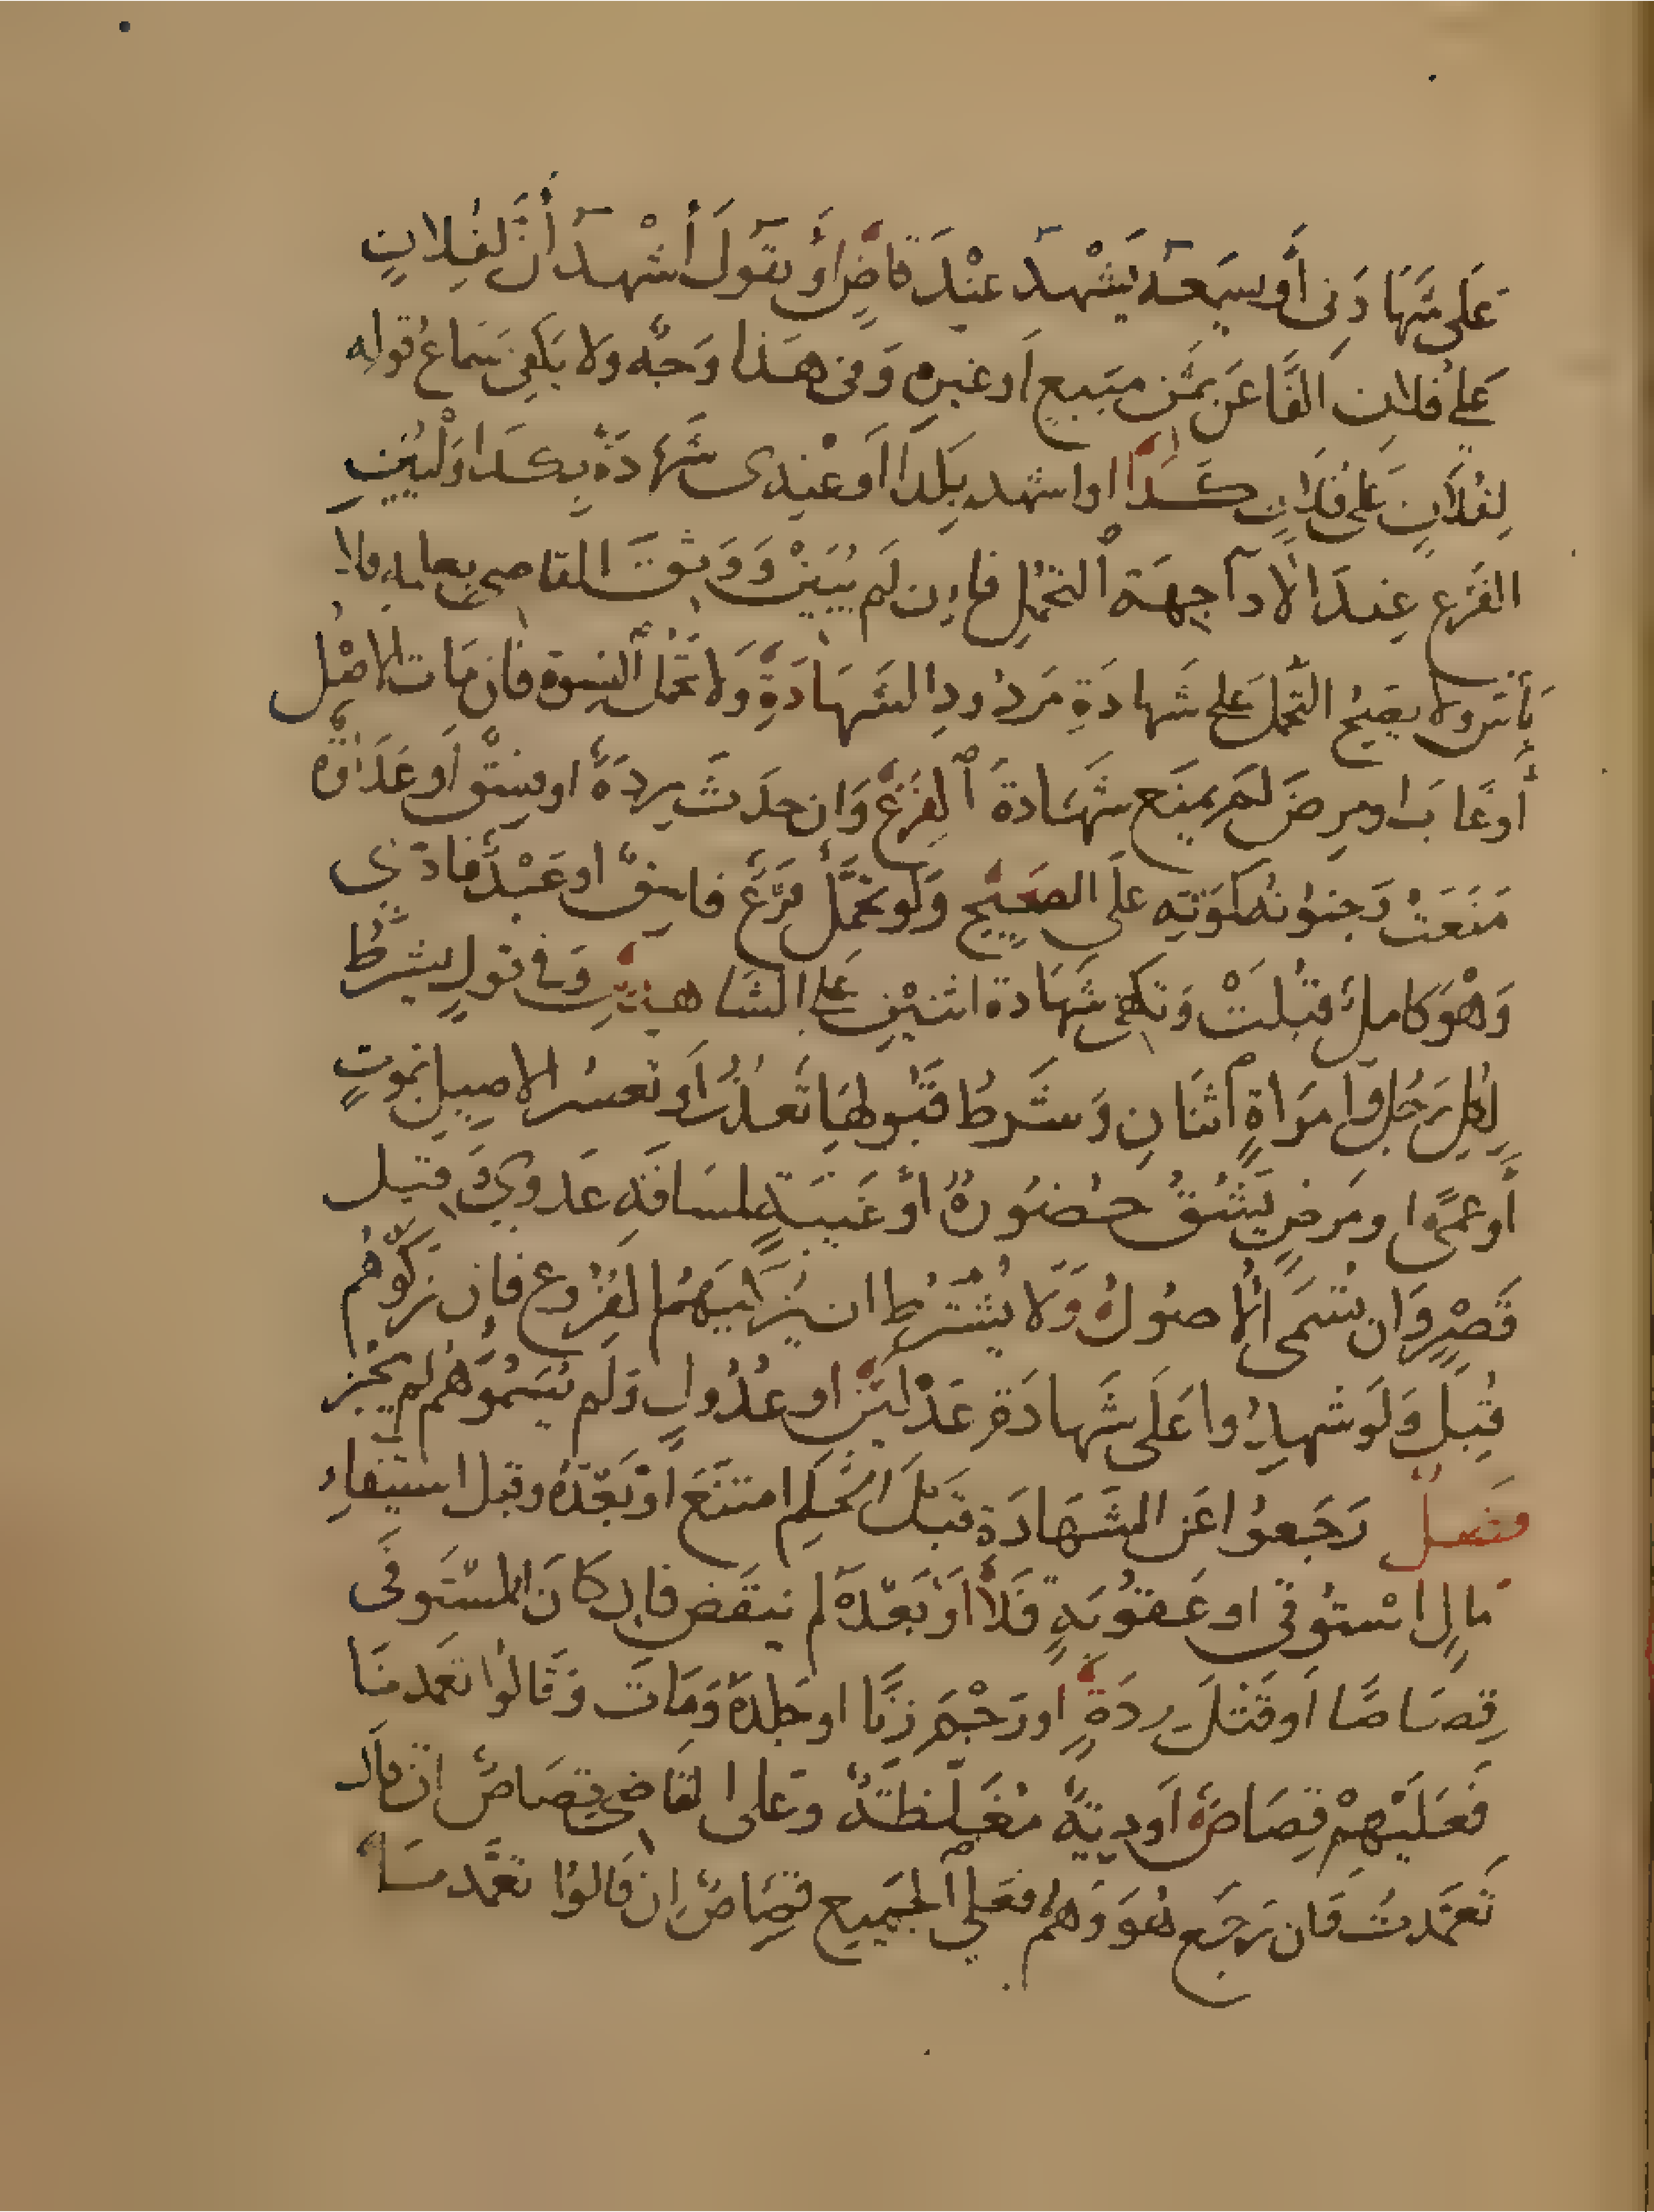 على شهادتي أو يسمعه يشهد عند قاض أو يقول أشهد أن لفلان
على فلان ألفا عن ثمن مبيع أو غيره وفي هذا وجه ولا يكفي سماع قوله
لفلان على فلان كذا او اشهد بكذا أو عندي شهادة بكذا وليبين
الفرع عند الأدآ جهة التحمل فإن لم يبين ووثق القاضي بعلمه فلا
بأس ولا يصح التحمل على شهادة مردود الشهادة ولا تحمل النسوة فان مات الاصل
أو غاب او مرض لم يمنع شهادة الفرع وان حدث ردة او فسق أو عداوة
منعت وجنونه كموته على الصحيح ولو تحمل فرع فاسق او عبد فادى
وهو كامل قبلت وتكفي شهادة اثنين على الشاهدين وفي قول يشترط
لكل رجل أو امراة اثنان وشرط قبولها تعذر أو تعسر الاصيل بموت
أو عمى او مرض يشق حضوره أو غيبة لمسافة عدوي وقيل
قصر وان يسمى الأصول ولا يشترط ان يزكيهم الفروع فإن زكوهم
قبل ولو شهدوا على شهادة عدلين او عدول ولم يسموهم لم يجز
فصل رجعوا عن الشهادة قبل الحكم امتنع أو بعده وقبل استيفاء
مال استوفي او عقوبة فلا أو بعده لم ينقض فإن كان المستوفى
قصاصا أو قتل ردة او رجم زنا او جلده ومات وقالوا تعمدنا
فعليهم قصاص أو دية مغلظة وعلى القاضي قصاص ان قال
تعمدت فان رجع هو وهم فعلى الجميع قصاص إن قالوا تعمدنا